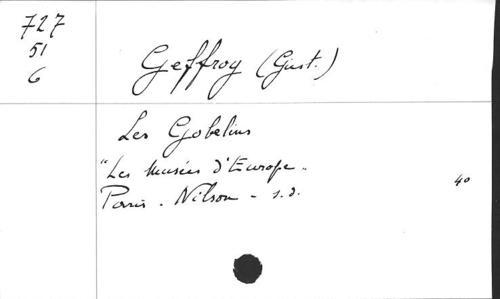 727
51
6
Geffroy (Gust.)
Les Gobelins
"Les Musées d'Europe.
Paris. Nilson - s.d.
4o